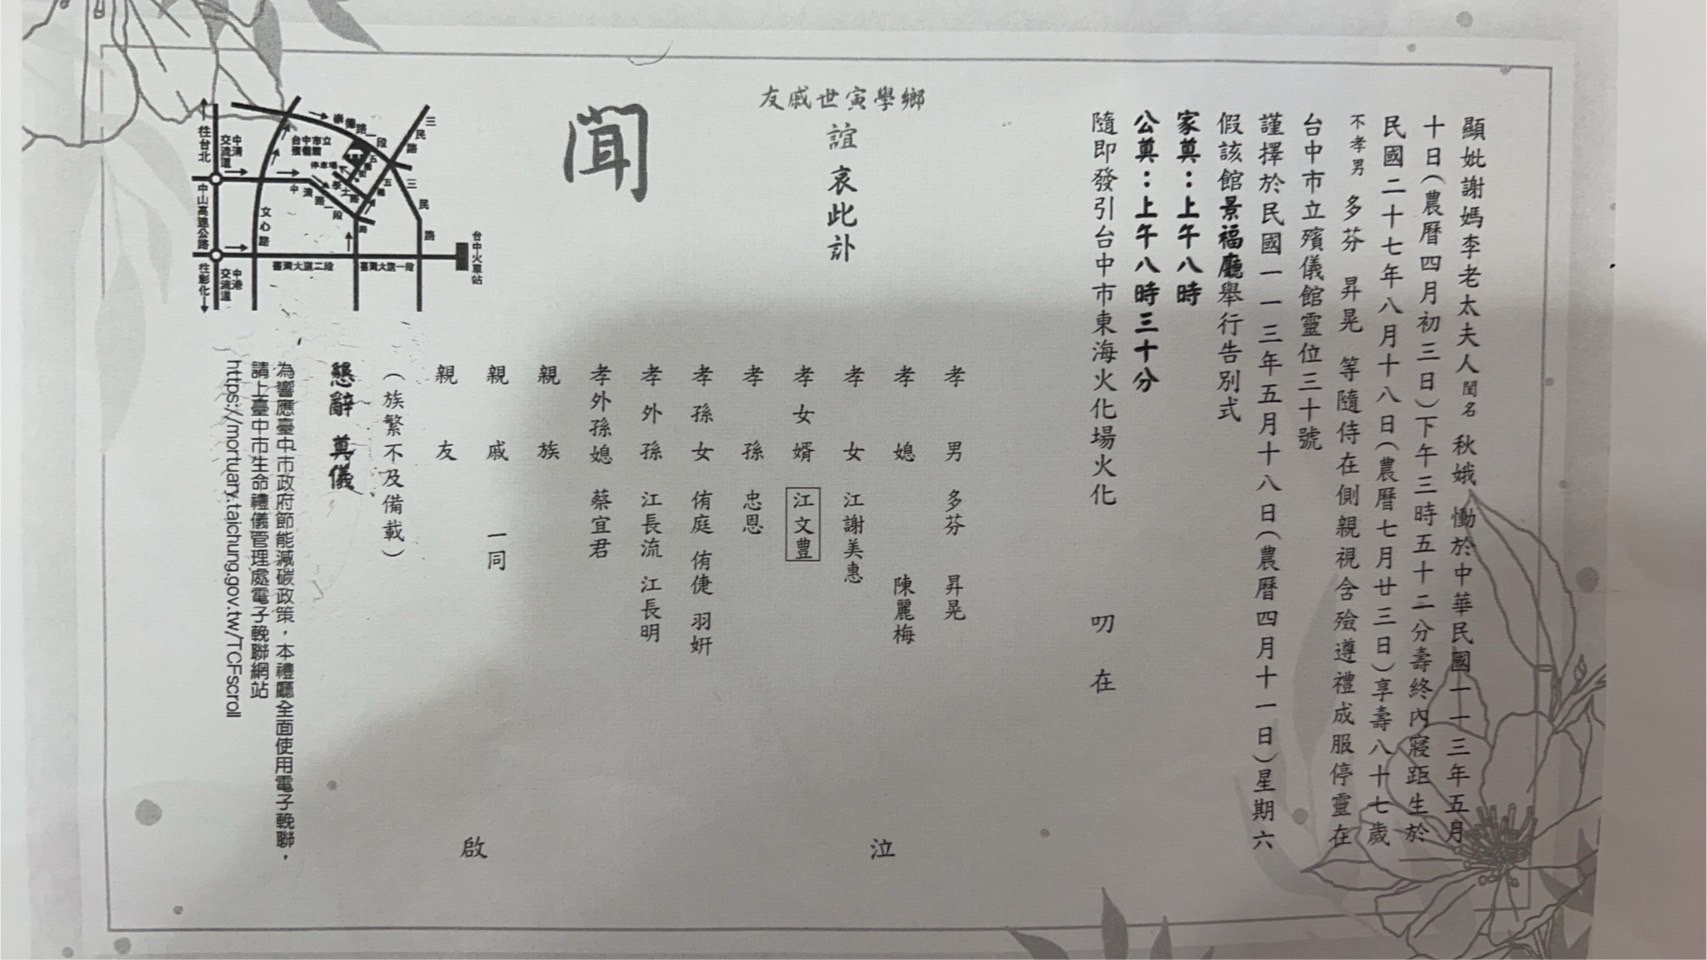 顯妣謝媽李老太夫人閨名 秋娥 慟於中華民國一一三年五月
十日(農曆四月初三日)下午三時五十二分壽終內寢距生於
民國二十七年八月十八日(農曆七月廿三日)享壽八十七歲
不孝男 多芬 昇晃 等隨侍在側親視含殮遵禮成服停靈在
台中市立殯儀館靈位三十號
謹擇於民國一一三年五月十八日(農曆四月十一日)星期六
假該館景福廳舉行告別式
家奠:上午八時
公奠:上午八時三十分
隨即發引台中市東海火化場火化 叨在
鄉學寅世戚友
誼 哀此訃
聞
孝男 多芬 昇晃
孝媳 陳麗梅
孝女 江謝美惠
孝女婿 江文豊
孝孫 忠恩
孝孫女 侑庭 侑倢 羽妍
孝外孫 江長流 江長明
孝外孫媳 蔡宜君
泣
親族
親戚 一同
親友
啟
(族繁不及備載)
懇辭 奠儀
為響應臺中市政府節能減碳政策,本禮廳全面使用電子輓聯,
請上臺中市生命禮儀管理處電子輓聯網站
https://mortuary.taichung.gov.tw/TCFscroll
往台北
中清交流道
中山高速公路
中港交流道
往彰化
文心路
台中市立殯儀館
崇德路一段
停車場
中清路一段
三民路
三民路
臺灣大道二段
臺灣大道一段
台中火車站